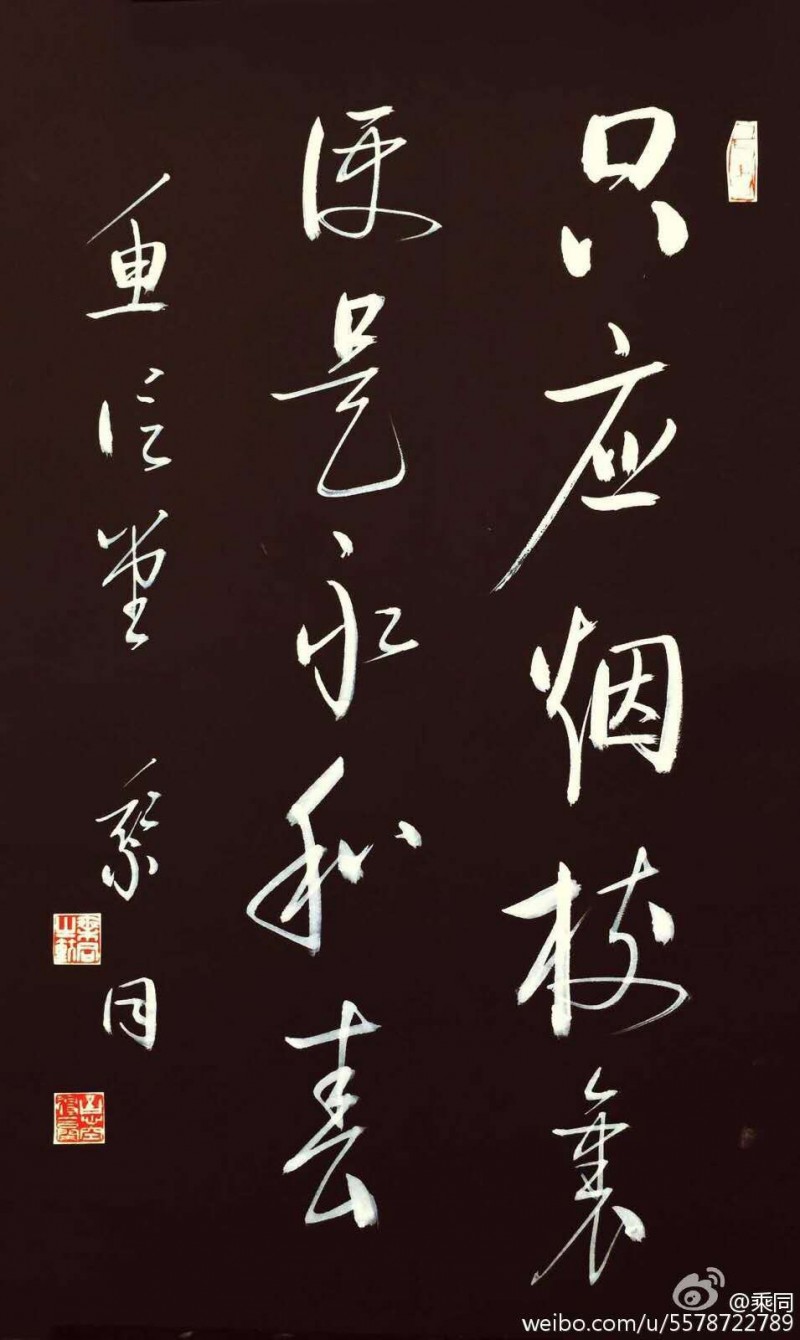 只应烟枝裏
便是永和春
重信堂 乘同
@乘同
weibo.com/u/5578722789